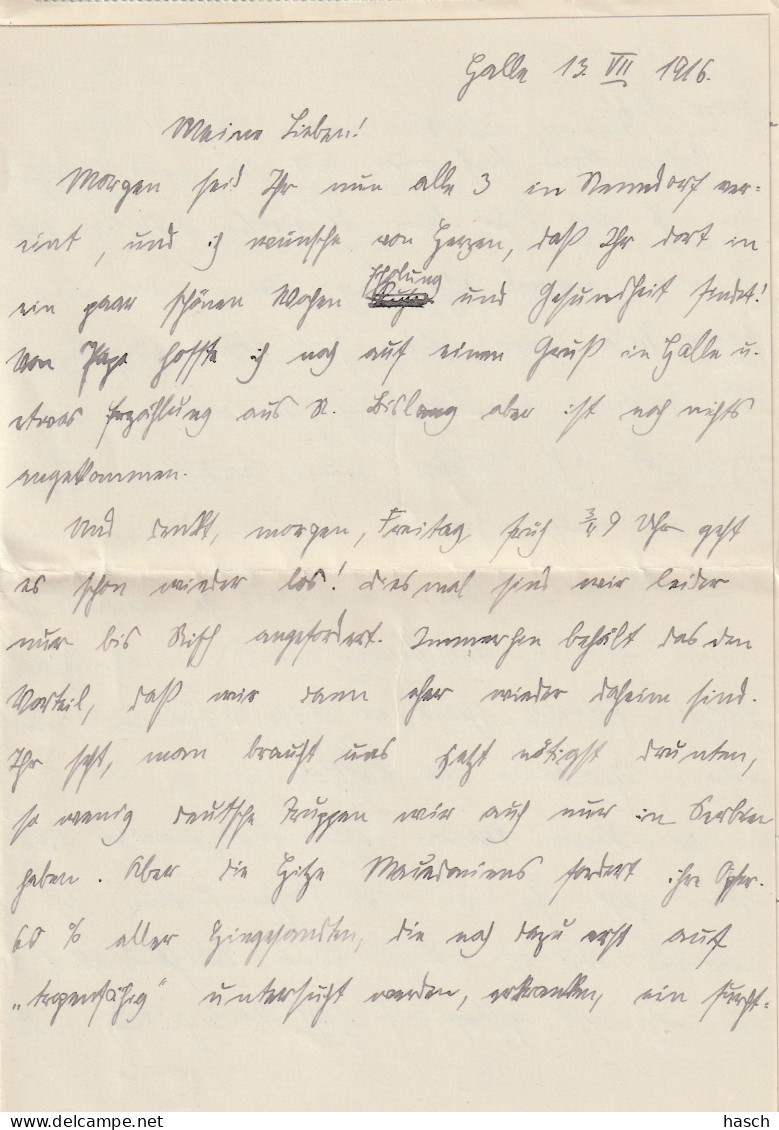 Halle 13. VII 1916.
Meine Lieben!
Morgen seid Ihr nun alle 3 in Nenndorf ver-
eint, und ich wünsche von Herzen, daß Ihr dort in
ein paar schönen Wochen Erholung und Gesundheit findet!
Von Papa hoffte ich noch auf einen Gruß in Halle u.
etwas Erzählung aus N. Bislang aber ist noch nichts
angekommen.
Und denkt, morgen, Freitag, früh 3/4 9 Uhr geht
es schon wieder los! Diesmal sind wir leider
nur bis Nisch angefordert. Immerhin behält das den
Vorteil, daß wir dann eher wieder daheim sind.
Ihr seht, man braucht uns jetzt nötigst drunten,
so wenig deutsche Truppen wir auch nur in Serbien
haben. Aber die Hitze Macedoniens fordert ihre Opfer.
60 % aller Hingesandten, die noch dazu erst auf
„tropenfähig" untersucht werden, erkranken, ein furcht-
hasch